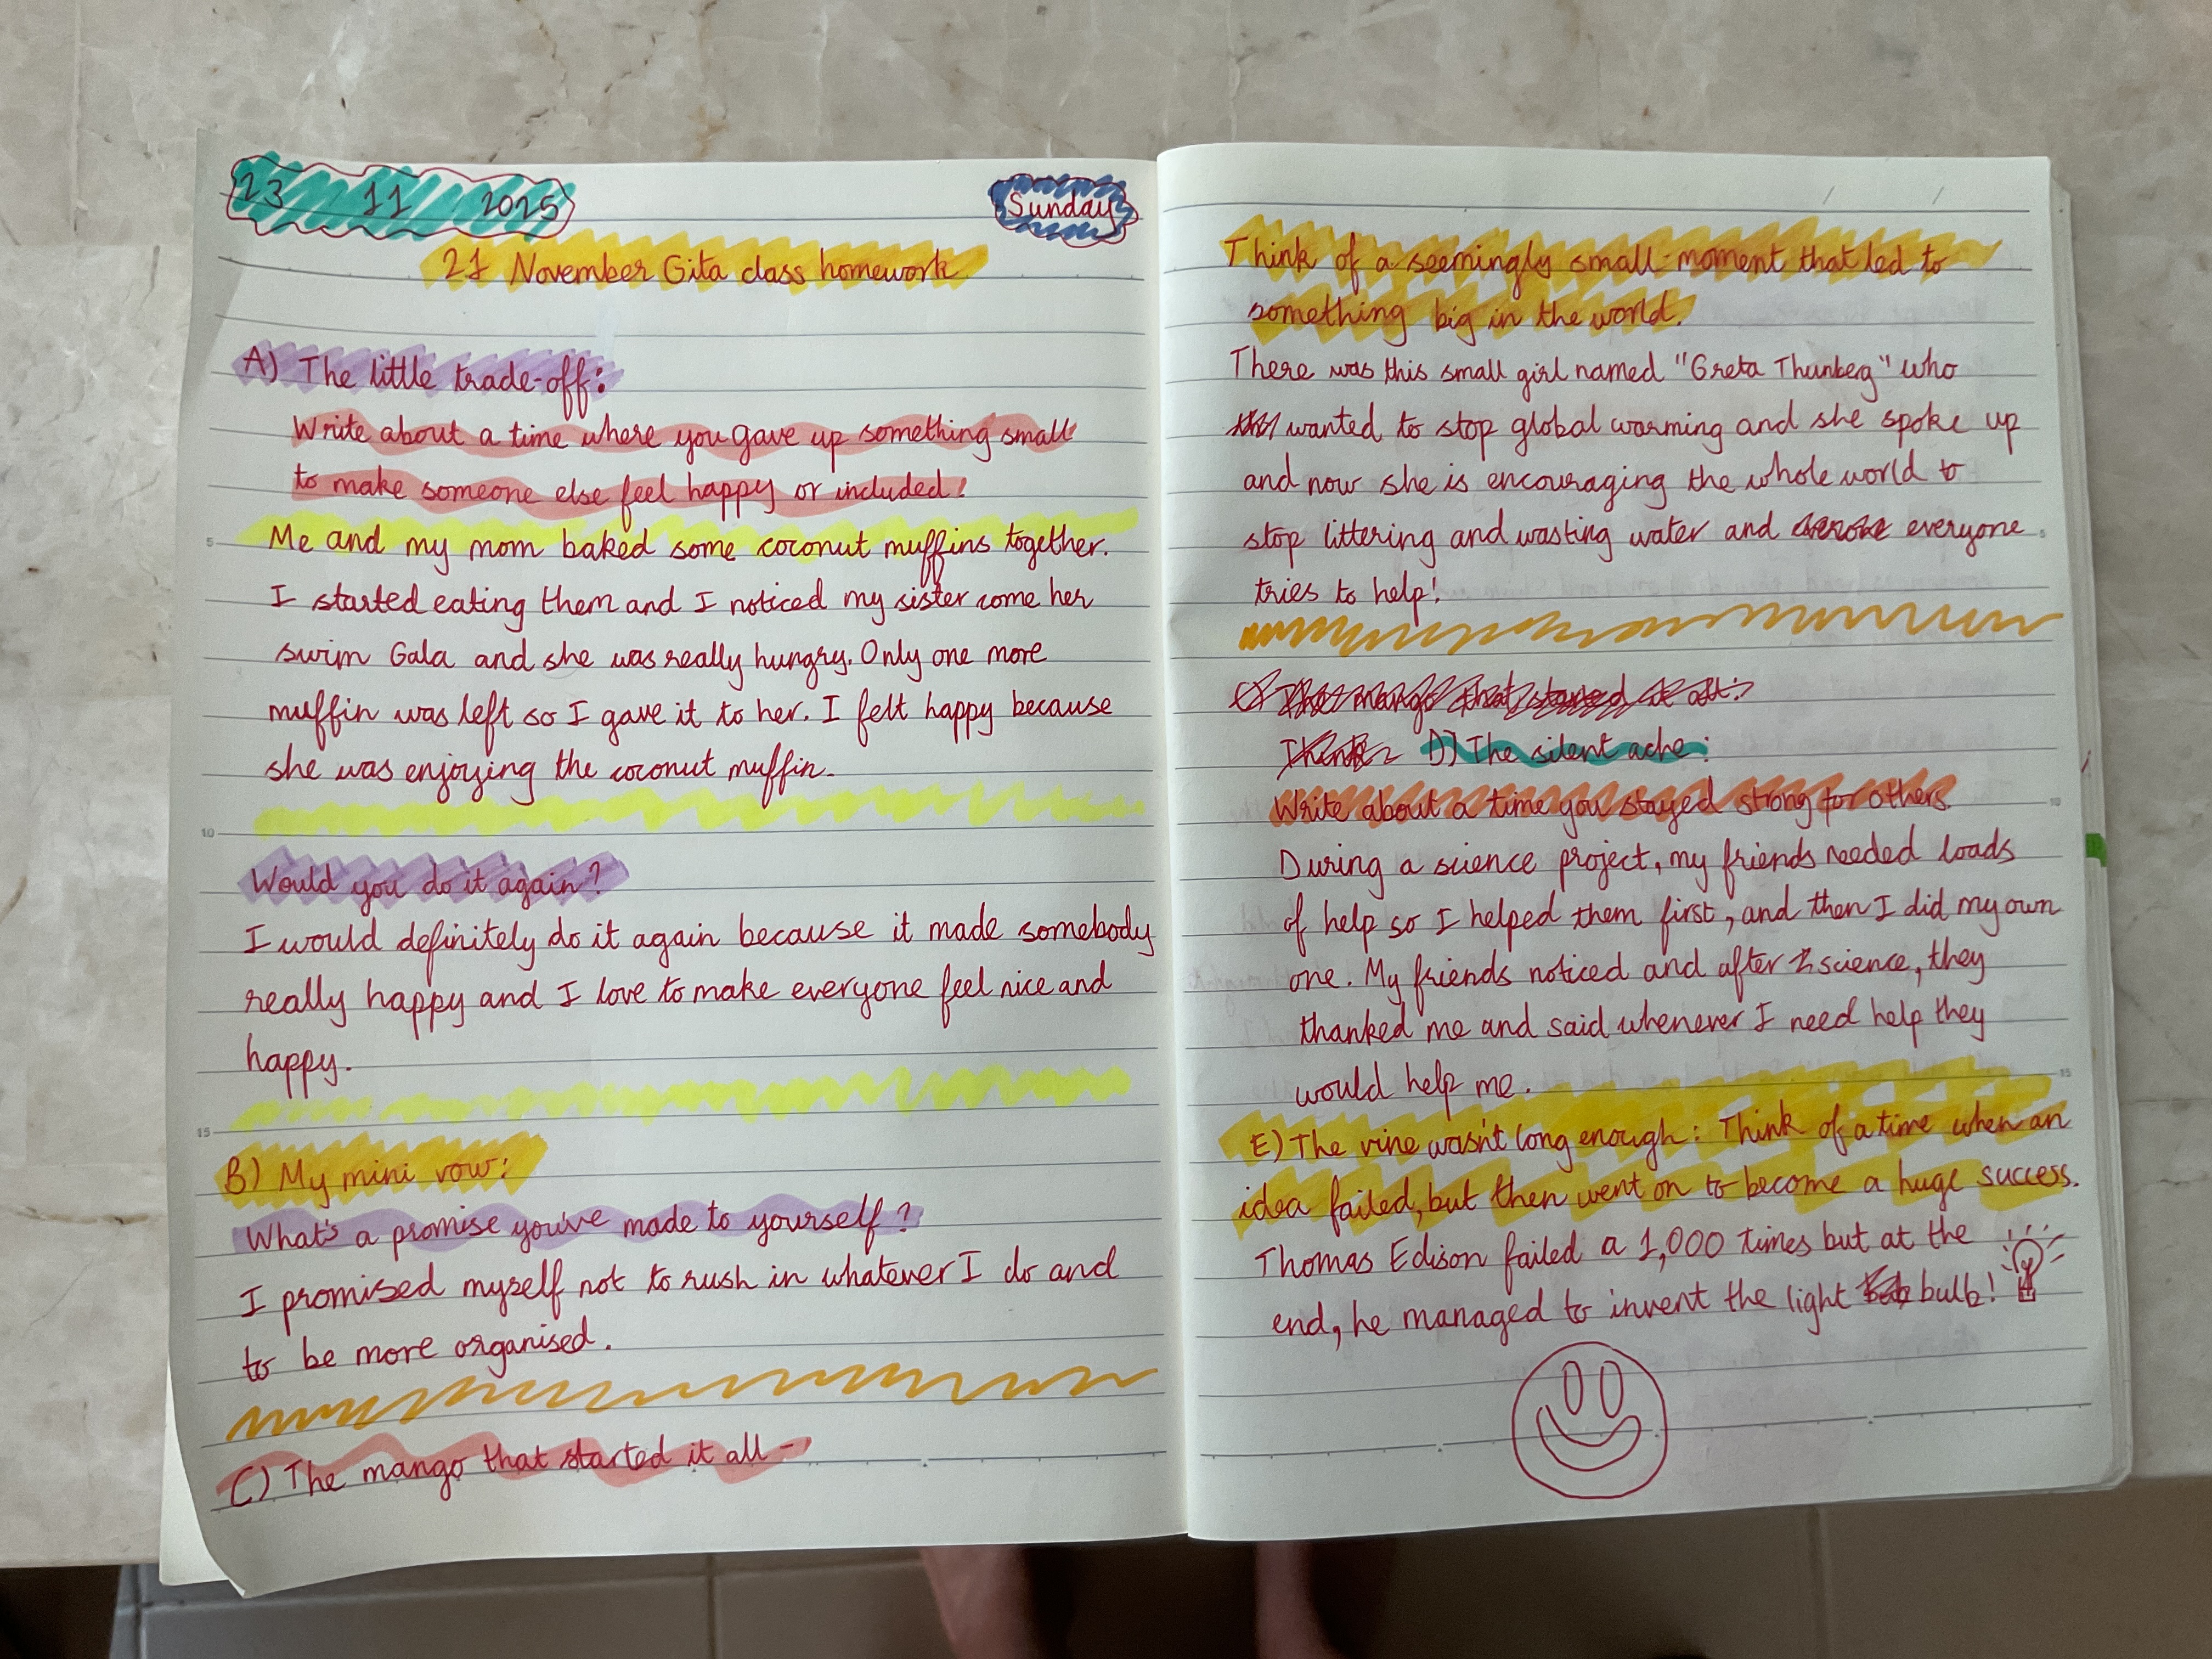 23 11 2025
Sunday
21 November Gita class homework
A) The little trade-off:
Write about a time where you gave up something small
to make someone else feel happy or included!
Me and my mom baked some coconut muffins together.
I started eating them and I noticed my sister come her
swim Gala and she was really hungry. Only one more
muffin was left so I gave it to her. I felt happy because
she was enjoying the coconut muffin.
Would you do it again?
I would definitely do it again because it made somebody
really happy and I love to make everyone feel nice and
happy.
B) My mini vow:
What's a promise you've made to yourself?
I promised myself not to rush in whatever I do and
to be more organised.
C) The mango that started it all -
Think of a seemingly small moment that led to
something big in the world.
There was this small girl named "Greta Thunberg" who
wanted to stop global warming and she spoke up
and now she is encouraging the whole world to
stop littering and wasting water and everyone
tries to help!
C) The mango that started it all:
Think D) The silent ache:
Write about a time you stayed strong for others.
During a science project, my friends needed loads
of help so I helped them first, and then I did my own
one. My friends noticed and after science, they
thanked me and said whenever I need help they
would help me.
E) The vine wasn't long enough: Think of a time when an
idea failed, but then went on to become a huge success.
Thomas Edison failed a 1,000 times but at the
end, he managed to invent the light bulb!
5
10
15
5
10
15